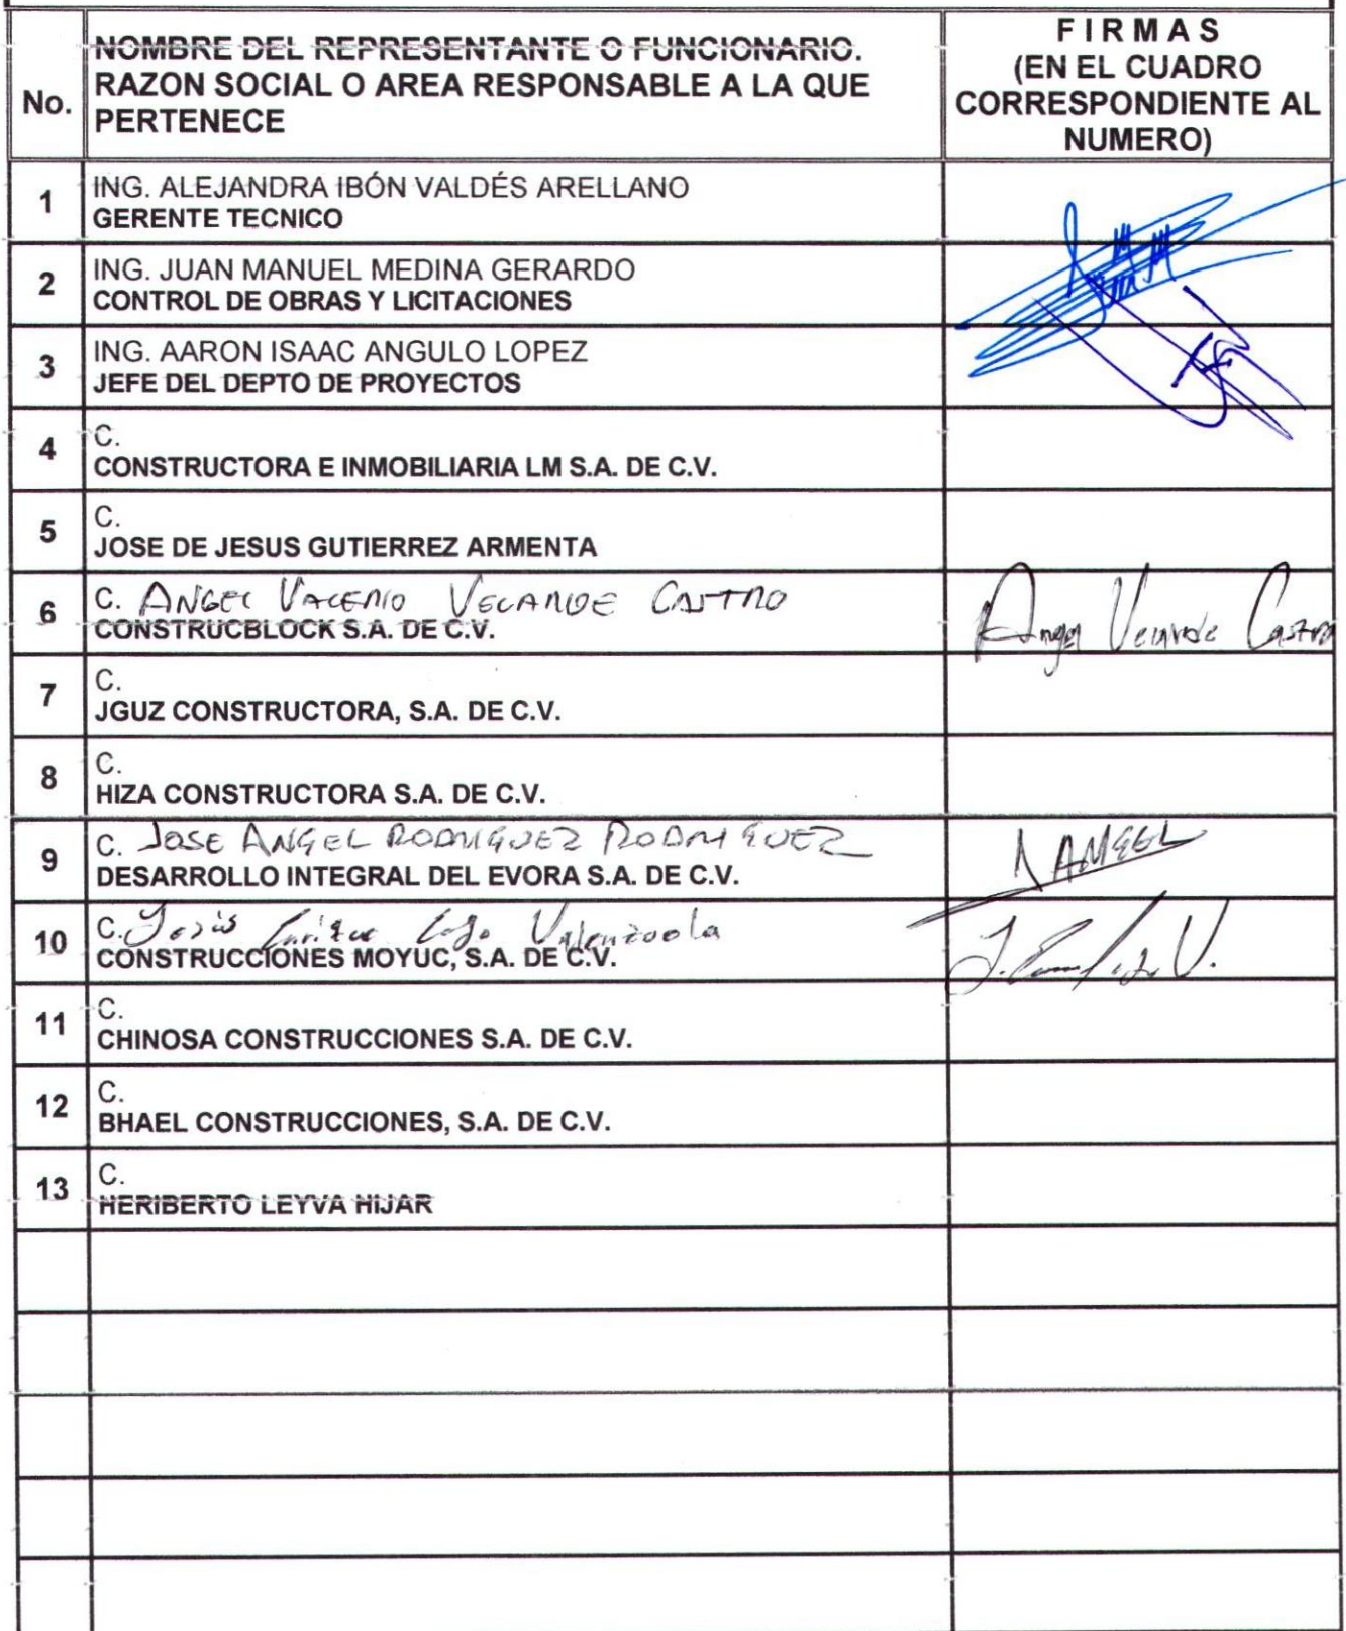 No.
NOMBRE DEL REPRESENTANTE O FUNCIONARIO.
RAZON SOCIAL O AREA RESPONSABLE A LA QUE
PERTENECE
F I R M A S
(EN EL CUADRO
CORRESPONDIENTE AL
NUMERO)
1
ING. ALEJANDRA IBÓN VALDÉS ARELLANO
GERENTE TECNICO
2
ING. JUAN MANUEL MEDINA GERARDO
CONTROL DE OBRAS Y LICITACIONES
3
ING. AARON ISAAC ANGULO LOPEZ
JEFE DEL DEPTO DE PROYECTOS
4
C.
CONSTRUCTORA E INMOBILIARIA LM S.A. DE C.V.
5
C.
JOSE DE JESUS GUTIERREZ ARMENTA
6
C. ANGEL VALERIO VELARDE CASTRO
CONSTRUCBLOCK S.A. DE C.V.
Angel Velarde Castro
7
C.
JGUZ CONSTRUCTORA, S.A. DE C.V.
8
C.
HIZA CONSTRUCTORA S.A. DE C.V.
9
C. JOSE ANGEL RODRIGUEZ RODRIGUEZ
DESARROLLO INTEGRAL DEL EVORA S.A. DE C.V.
J ANGEL
10
C. Jesús Enrique Valenzuela
CONSTRUCCIONES MOYUC, S.A. DE C.V.
11
C.
CHINOSA CONSTRUCCIONES S.A. DE C.V.
12
C.
BHAEL CONSTRUCCIONES, S.A. DE C.V.
13
C.
HERIBERTO LEYVA HIJAR